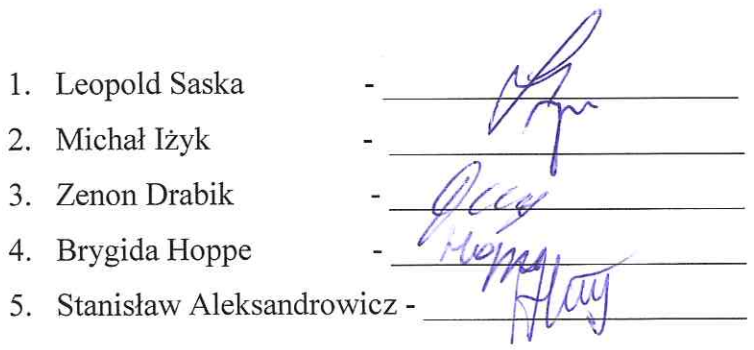 1. Leopold Saska -
2. Michał Iżyk -
3. Zenon Drabik -
4. Brygida Hoppe -
5. Stanisław Aleksandrowicz -